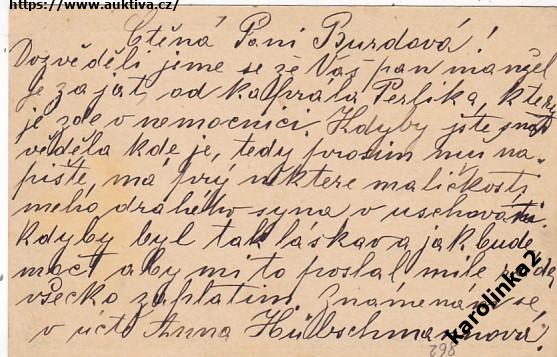 https://www.auktiva.cz/
Ctěná Paní Burdová!
Dozvěděli jsme se že Váš pan manžel
je zajat, od kaprála Perlika, který
je zde v nemocnici. Kdyby jste snad
věděla kde je, tedy prosím mu na-
pište, má prý některe maličkosti
meho drahého syna, v uschování.
Kdyby byl tak láskav a jak bude
moct aby mi to poslal mile
všecko zaplatím. Známenám se
v úctě Anna Hübschmannová.
karolinka2
862